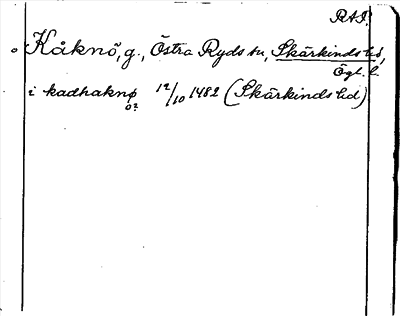 RAP.
Kåknö, g., Östra Ryds sn, Skärkinds hd,
Ögl. l.
i kadhaknø 12/10 1482 (Skärkinds hd)
o?